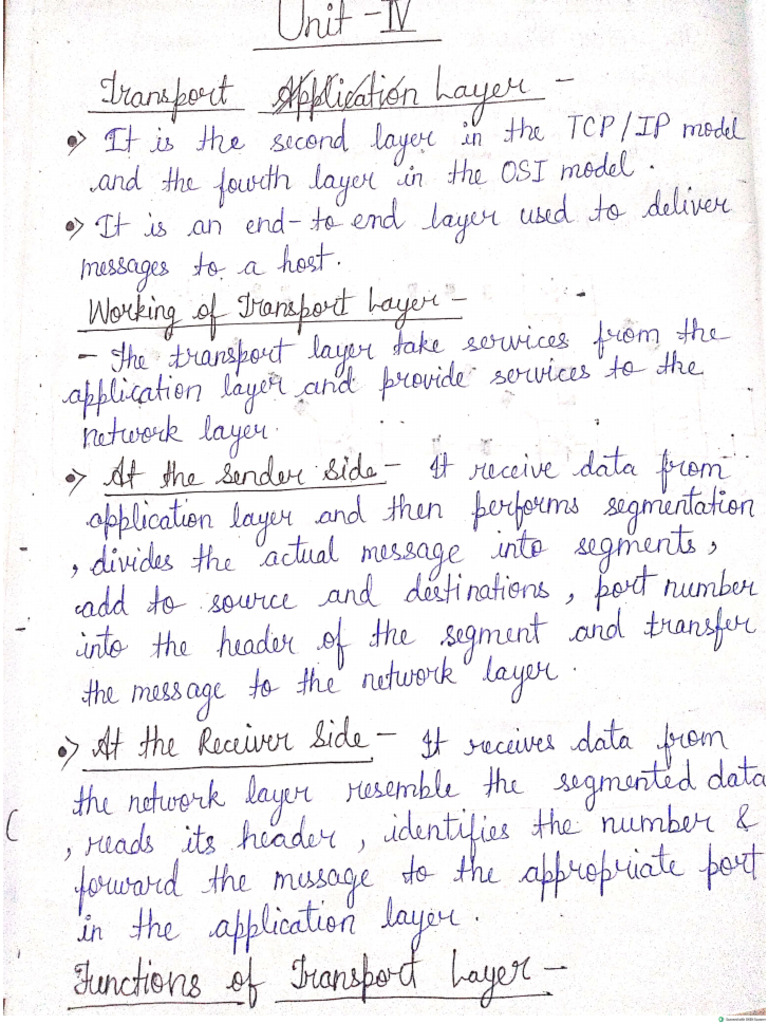 Unit - IV
Transport Application Layer -
•> It is the second layer in the TCP/IP model
and the fourth layer in the OSI model.
•> It is an end-to end layer used to deliver
messages to a host.
Working of Transport Layer -
- The transport layer take services from the
application layer and provide services to the
network layer.
•> At the Sender Side - It receive data from
application layer and then performs segmentation
, divides the actual message into segments,
add to source and destinations, port number
into the header of the segment and transfer
the message to the network layer.
•> At the Receiver Side - It receives data from
the network layer resemble the segmented data
, reads its header, identifies the number &
forward the message to the appropriate port
in the application layer.
Functions of Transport Layer -